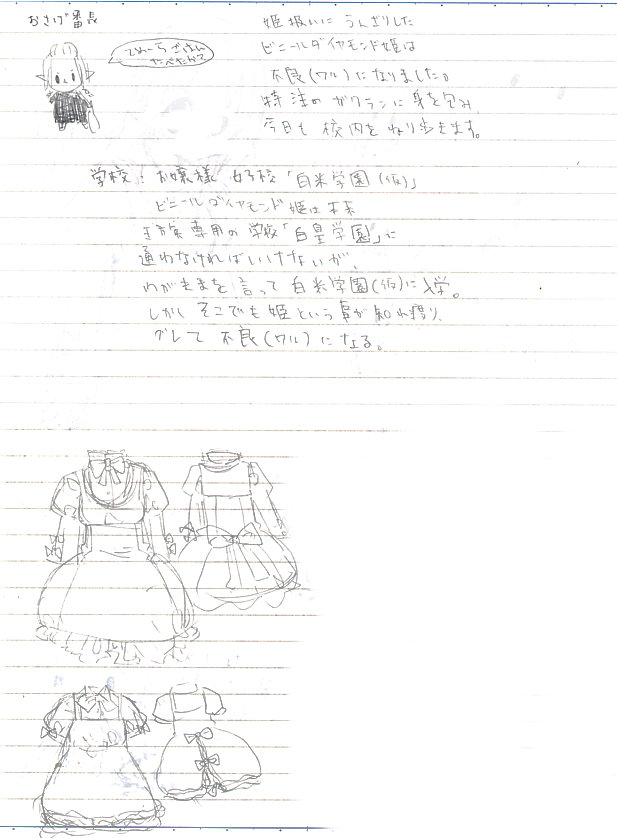 おさげ番長
てめーらごはん
たべたか?
姫扱いにうんざりした
ビニールダイヤモンド姫は
不良(ワル)になりました。
特注のガクランに身を包み、
今日も校内をねり歩きます。
学校:お嬢様女子校「白米学園(仮)」
ビニールダイヤモンド姫は本来
王族専用の学校「白皇学園」に
通わなければいけないが、
わがままを言って白米学園(仮)に入学。
しかしそこでも姫という事が知れ渡り、
グレて不良(ワル)になる。